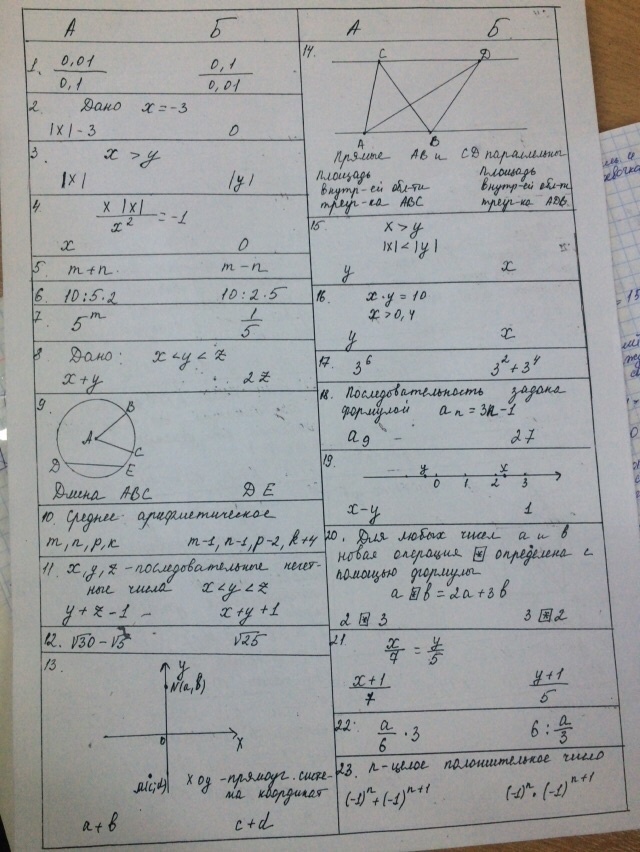 А Б
1. 0,01/0,1 0,1/0,01
2. Дано x = -3
|x| - 3 0
3. x > y
|x| |y|
4 x |x| / x² = -1
x 0
5 m + n m - n
6. 10 : 5 · 2 10 : 2 · 5
7. 5^m 1/5
8 Дано: x < y < z
x + y 2z
9.
B
A
C
D E
Длина ABC DE
10. Среднее арифметическое
m, n, p, k m-1, n-1, p-2, k+4
11. x, y, z - последовательные нечет-
ные числа x < y < z
y + z - 1 x + y + 1
12. √30 - √5 √25
13
y
N(a, b)
0 x
M(c; d) X O y - прямоуг. систе-
ма координат
a + b c + d
А Б
14.
C D
A B
Прямые AB и CD параллельны
Площадь Площадь
внутр-ей обл-ти внутр-ей обл-ти
треуг-ка ABC треуг-ка ADB.
15 x > y
|x| < |y|
y x
16 x · y = 10
x > 0,4
y x
17. 3⁶ 3² + 3⁴
18. Последовательность задана
формулой a n = 3n - 1
a 9 27
19.
y 0 1 2 x 3
x - y 1
20. Для любых чисел a и b
новая операция * определена с
помощью формулы
a * b = 2a + 3b
2 * 3 3 * 2
21 x/7 = y/5
x+1/7 y+1/5
22. a/6 · 3 6 : a/3
23. n - целое положительное число
(-1)^n + (-1)^n+1 (-1)^n · (-1)^n+1